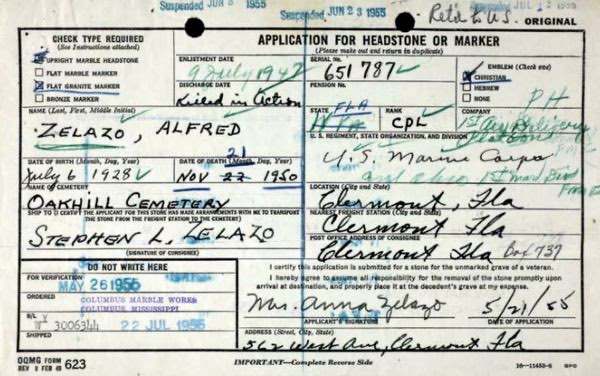 Suspended JUN 3 1955
Suspended JUN 23 1955
Suspended JUL 12 1955
Ret'd to U.S. ORIGINAL
CHECK TYPE REQUIRED
(See Instructions attached)
UPRIGHT MARBLE HEADSTONE
FLAT MARBLE MARKER
FLAT GRANITE MARKER
BRONZE MARKER
APPLICATION FOR HEADSTONE OR MARKER
(Please make out and return in duplicate)
ENLISTMENT DATE
9 July 1947
SERIAL No.
651 787
EMBLEM (Check one)
CHRISTIAN
HEBREW
NONE
DISCHARGE DATE
Killed in Action
PENSION No.
NAME (Last, First, Middle Initial)
ZELAZO, ALFRED
STATE
FLA
RANK
CPL
COMPANY
PH
U. S. REGIMENT, STATE ORGANIZATION, AND DIVISION
U.S. Marine Corps
DATE OF BIRTH (Month, Day, Year)
July 6 1928
DATE OF DEATH (Month, Day, Year)
21
NOV 22 1950
1st Mar
NAME OF CEMETERY
OAKHILL CEMETERY
LOCATION (City and State)
Clermont, Fla
SHIP TO (I CERTIFY THE APPLICANT FOR THIS STONE HAS MADE ARRANGEMENTS WITH ME TO TRANSPORT THE STONE FROM THE FREIGHT STATION TO THE CEMETERY)
STEPHEN L. ZELAZO
(SIGNATURE OF CONSIGNEE)
NEAREST FREIGHT STATION (City and State)
Clermont, Fla
POST OFFICE ADDRESS OF CONSIGNEE
Clermont Fla Box 737
DO NOT WRITE HERE
FOR VERIFICATION
MAY 26 1955
ORDERED
COLUMBUS MARBLE WORKS
COLUMBUS, MISSISSIPPI
B/L
3006344
22 JUL 1955
SHIPPED
I certify this application is submitted for a stone for the unmarked grave of a veteran.
I hereby agree to assume all responsibility for the removal of the stone promptly upon arrival at destination, and properly place it at the decedent's grave at my expense.
Mrs. Anna Zelazo 5/21/55
APPLICANT'S SIGNATURE DATE OF APPLICATION
ADDRESS (Street, City, State)
562 West Ave, Clermont, Fla
OQMG FORM
REV 8 FEB 49 623
IMPORTANT—Complete Reverse Side
16—11453-6 GPO